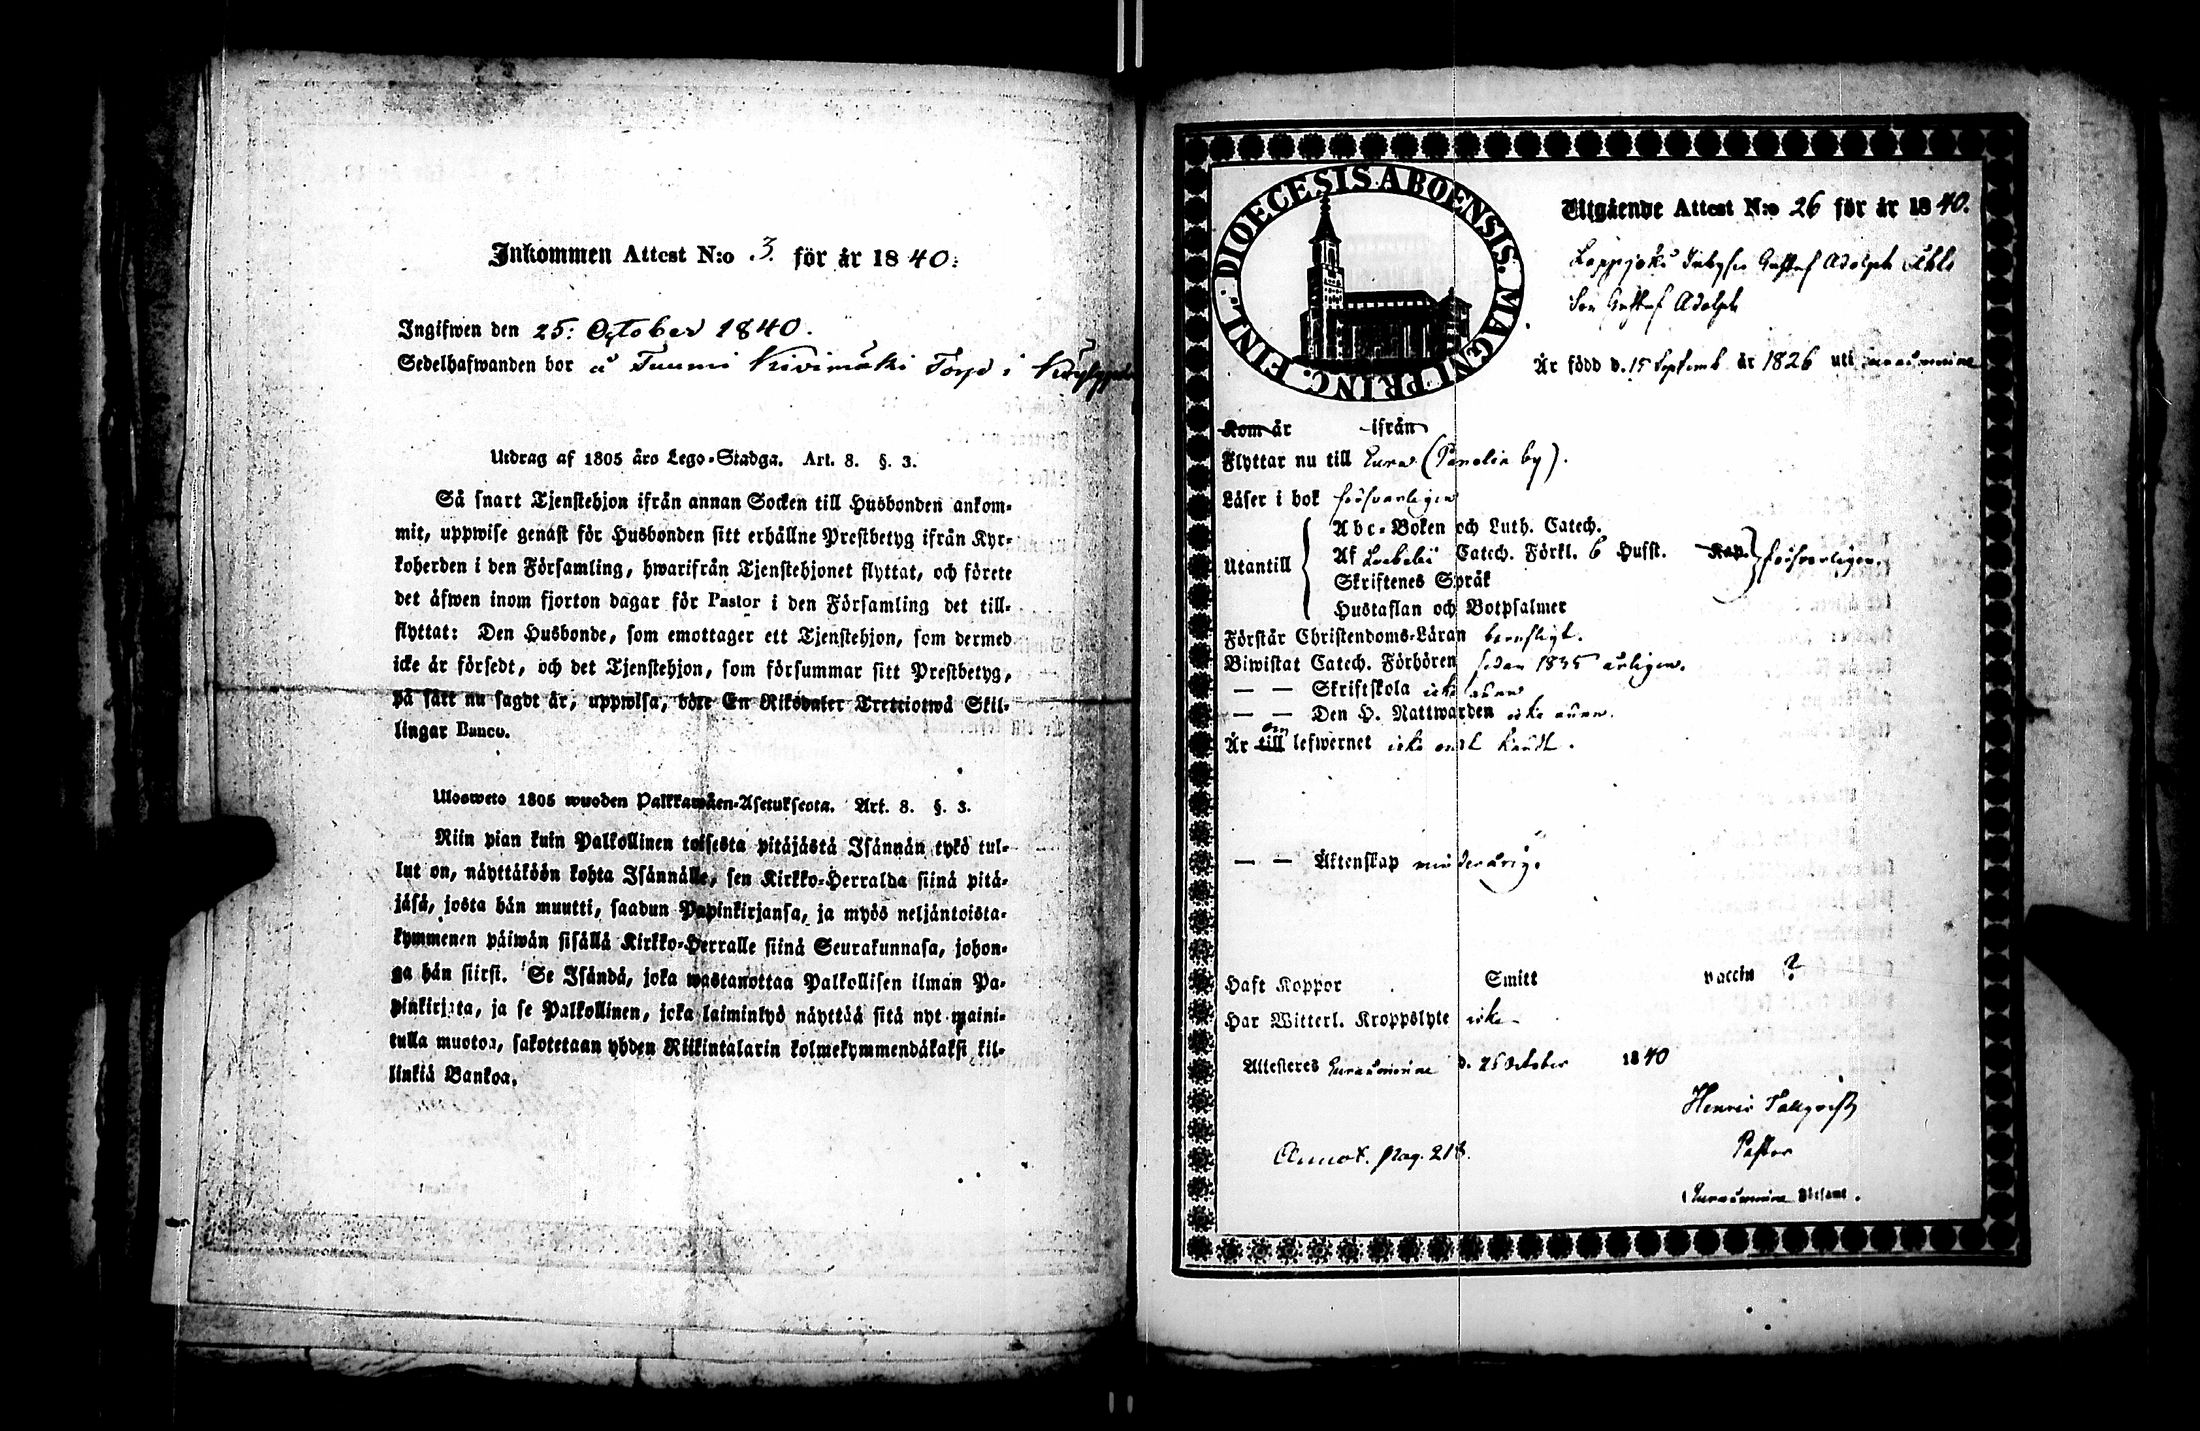 Inkommen Attest N:o 3. för år 1840.
Ingifwen den 25: October 1840.
Sedelhafwanden bor å Tuumi Kivimäki Torp i
Utdrag af 1805 års Lego-Stadga. Art. 8. §. 3.
Så snart Tjenstehjon ifrån annan Socken till Husbonden ankom-
mit, uppwise genast för Husbonden sitt erhållne Prestbetyg ifrån Kyr-
koherden i den Församling, hwarifrån Tjenstehjonet flyttat, och förete
det äfwen inom fjorton dagar för Pastor i den Församling det till-
flyttat: Den Husbonde, som emottager ett Tjenstehjon, som dermed
icke är försedt, och det Tjenstehjon, som försummar sitt Prestbetyg,
på sätt nu sagdt är, uppwisa, böte En Riksdaler Trettiotwå Skil-
lingar Banco.
Ulosweto 1805 wuoden Palkkawäen-Asetuksesta. Art. 8. §. 3.
Niin pian kuin Palkollinen toisesta pitäjästä Isännän tykö tul-
lut on, näyttäköön kohta Isännälle, sen Kirkko-Herralda siinä pitä-
jäsä, josta hän muutti, saadun Papinkirjansa, ja myös neljäntoista-
kymmenen päiwän sisällä Kirkko-Herralle siinä Seurakunnasa, johon-
ga hän siirsi. Se Isändä, joka wastanottaa Palkollisen ilman Pa-
pinkirjata, ja se Palkollinen, joka laiminlyö näyttää sitä nyt maini-
tulla muotoa, sakotetaan yhden Riikintalarin kolmekymmendäkaksi kil-
linkiä Bankoa.
DIOECESIS ABOENSIS. MAGNI PRINC. FINL.
Utgående Attest N:o 26 för år 1840.
Lappjoki Gustaf Adolph
Son Gustaf Adolph
Är född d. 15 Septemb år 1826 uti Euraaminne
Kom år ifrån
Flyttar nu till Eura (Panelia by).
Läser i bok försvarligen
Utantill
Abc-Boken och Luth. Catech.
Af Catech. Förkl. 6 Hufst. Kap. försvarligen.
Skriftenes Språk
Hustaflan och Botpsalmer
Förstår Christendoms-Läran
Biwistat Catech. Förhören sedan 1835 årligen.
— — Skriftskola icke ännu
— — Den H. Nattwarden icke ännu.
Är till om lefwernet icke ondt kändt.
— — Äktenskap minderårig.
Haft Koppor Smitt vaccin ?
Har Witterl. Kroppslyte icke
Attesteres Euraaminne d. 25 October 1840
Henric Tallqvist
Pastor
Annot. pag. 218.
Euraaminne Förs